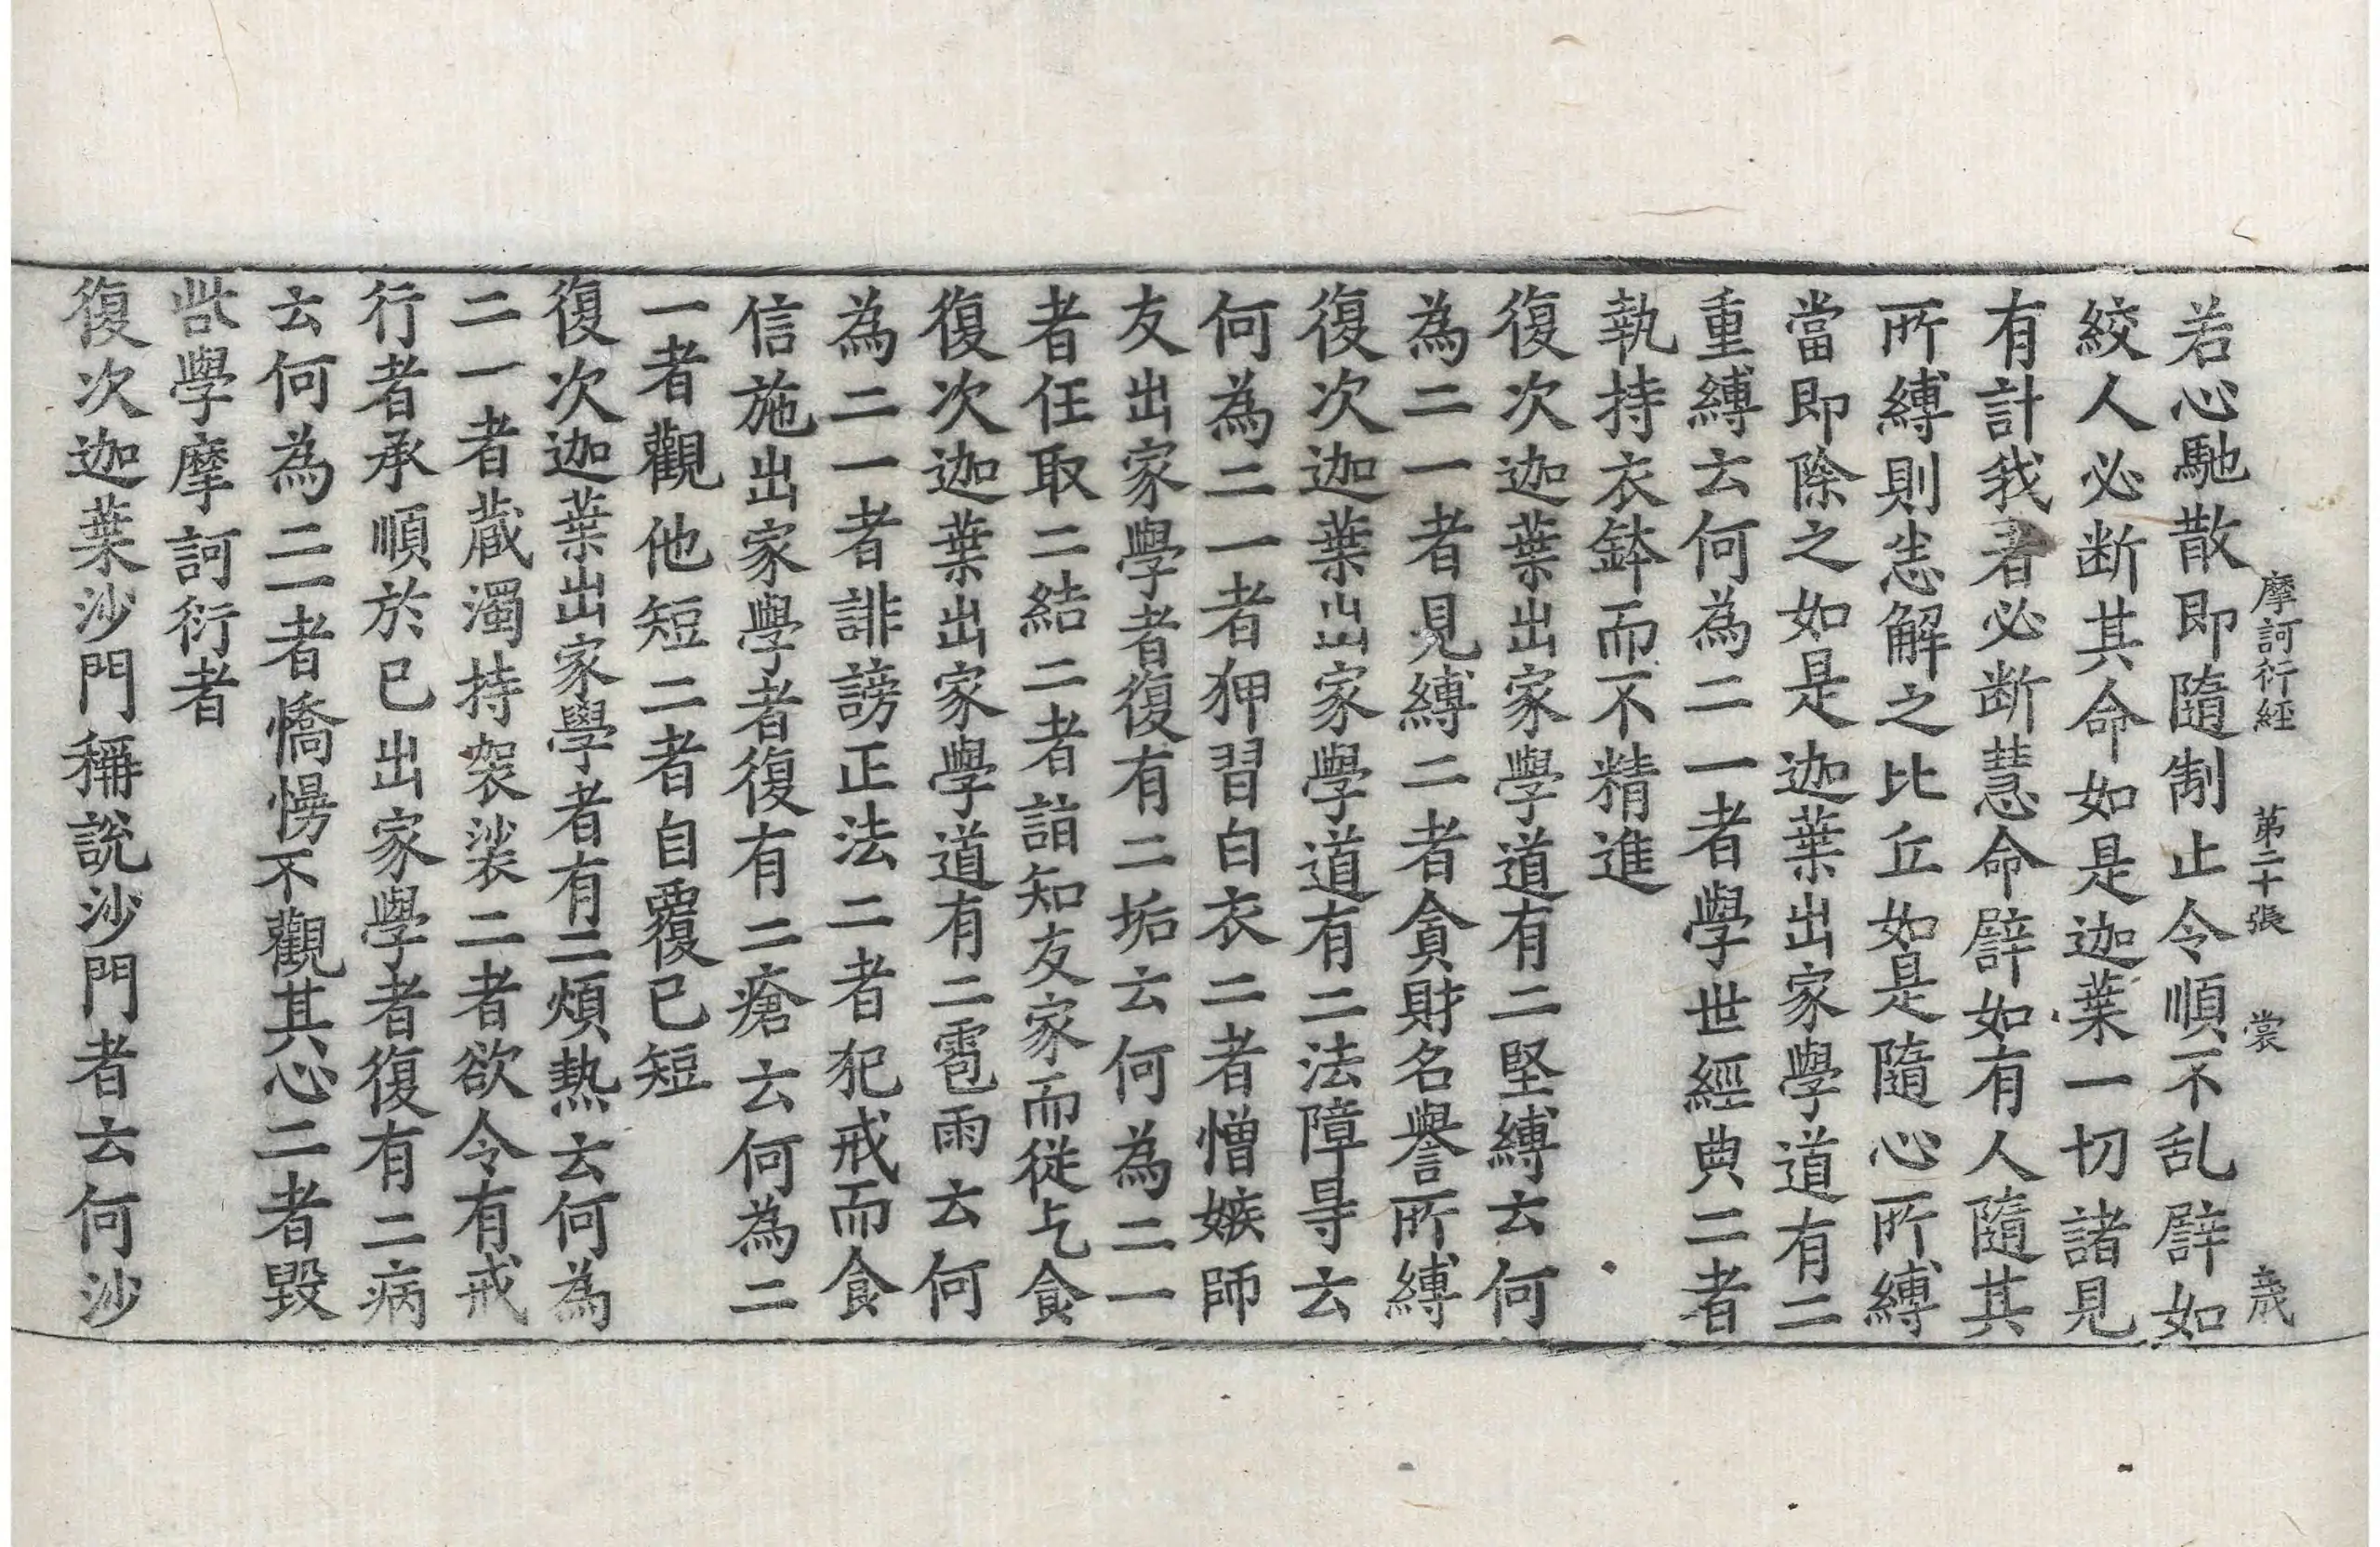 摩訶衍經 第二十張 裳 歲
若心馳散即隨制止令順不乱辟如
絞人必断其命如是迦葉一切諸見
有計我者必断慧命辟如有人隨其
所縛則恙解之比丘如是隨心所縛
當即除之如是迦葉出家學道有二
重縛云何為二一者學世經典二者
執持衣鉢而不精進
復次迦葉出家學道有二堅縛云何
為二一者見縛二者貪財名譽所縛
復次迦葉出家學道有二法障㝵云
何為二一者狎習白衣二者憎嫉師
友出家學者復有二垢云何為二一
者任取二結二者詣知友家而從乞食
復次迦葉出家學道有二雹雨云何
為二一者誹謗正法二者犯戒而食
信施出家學者復有二瘡云何為二
一者觀他短二者自覆已短
復次迦葉出家學者有二煩熱云何為
二一者蔵濁持袈裟二者欲令有戒
行者承順於已出家學者復有二病
云何為二一者憍慢不觀其心二者毀
呰學摩訶衍者
復次迦葉沙門稱說沙門者云何沙